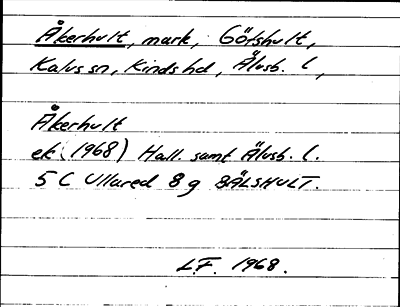 Åkerhult, mark, Götshult,
Kalvs sn, Kinds hd, Älvsb. l,
Åkerhult
ek (1968) Hall. samt Älvsb. l.
5 C Ullared 8 g BÄLSHULT.
L.F. 1968.